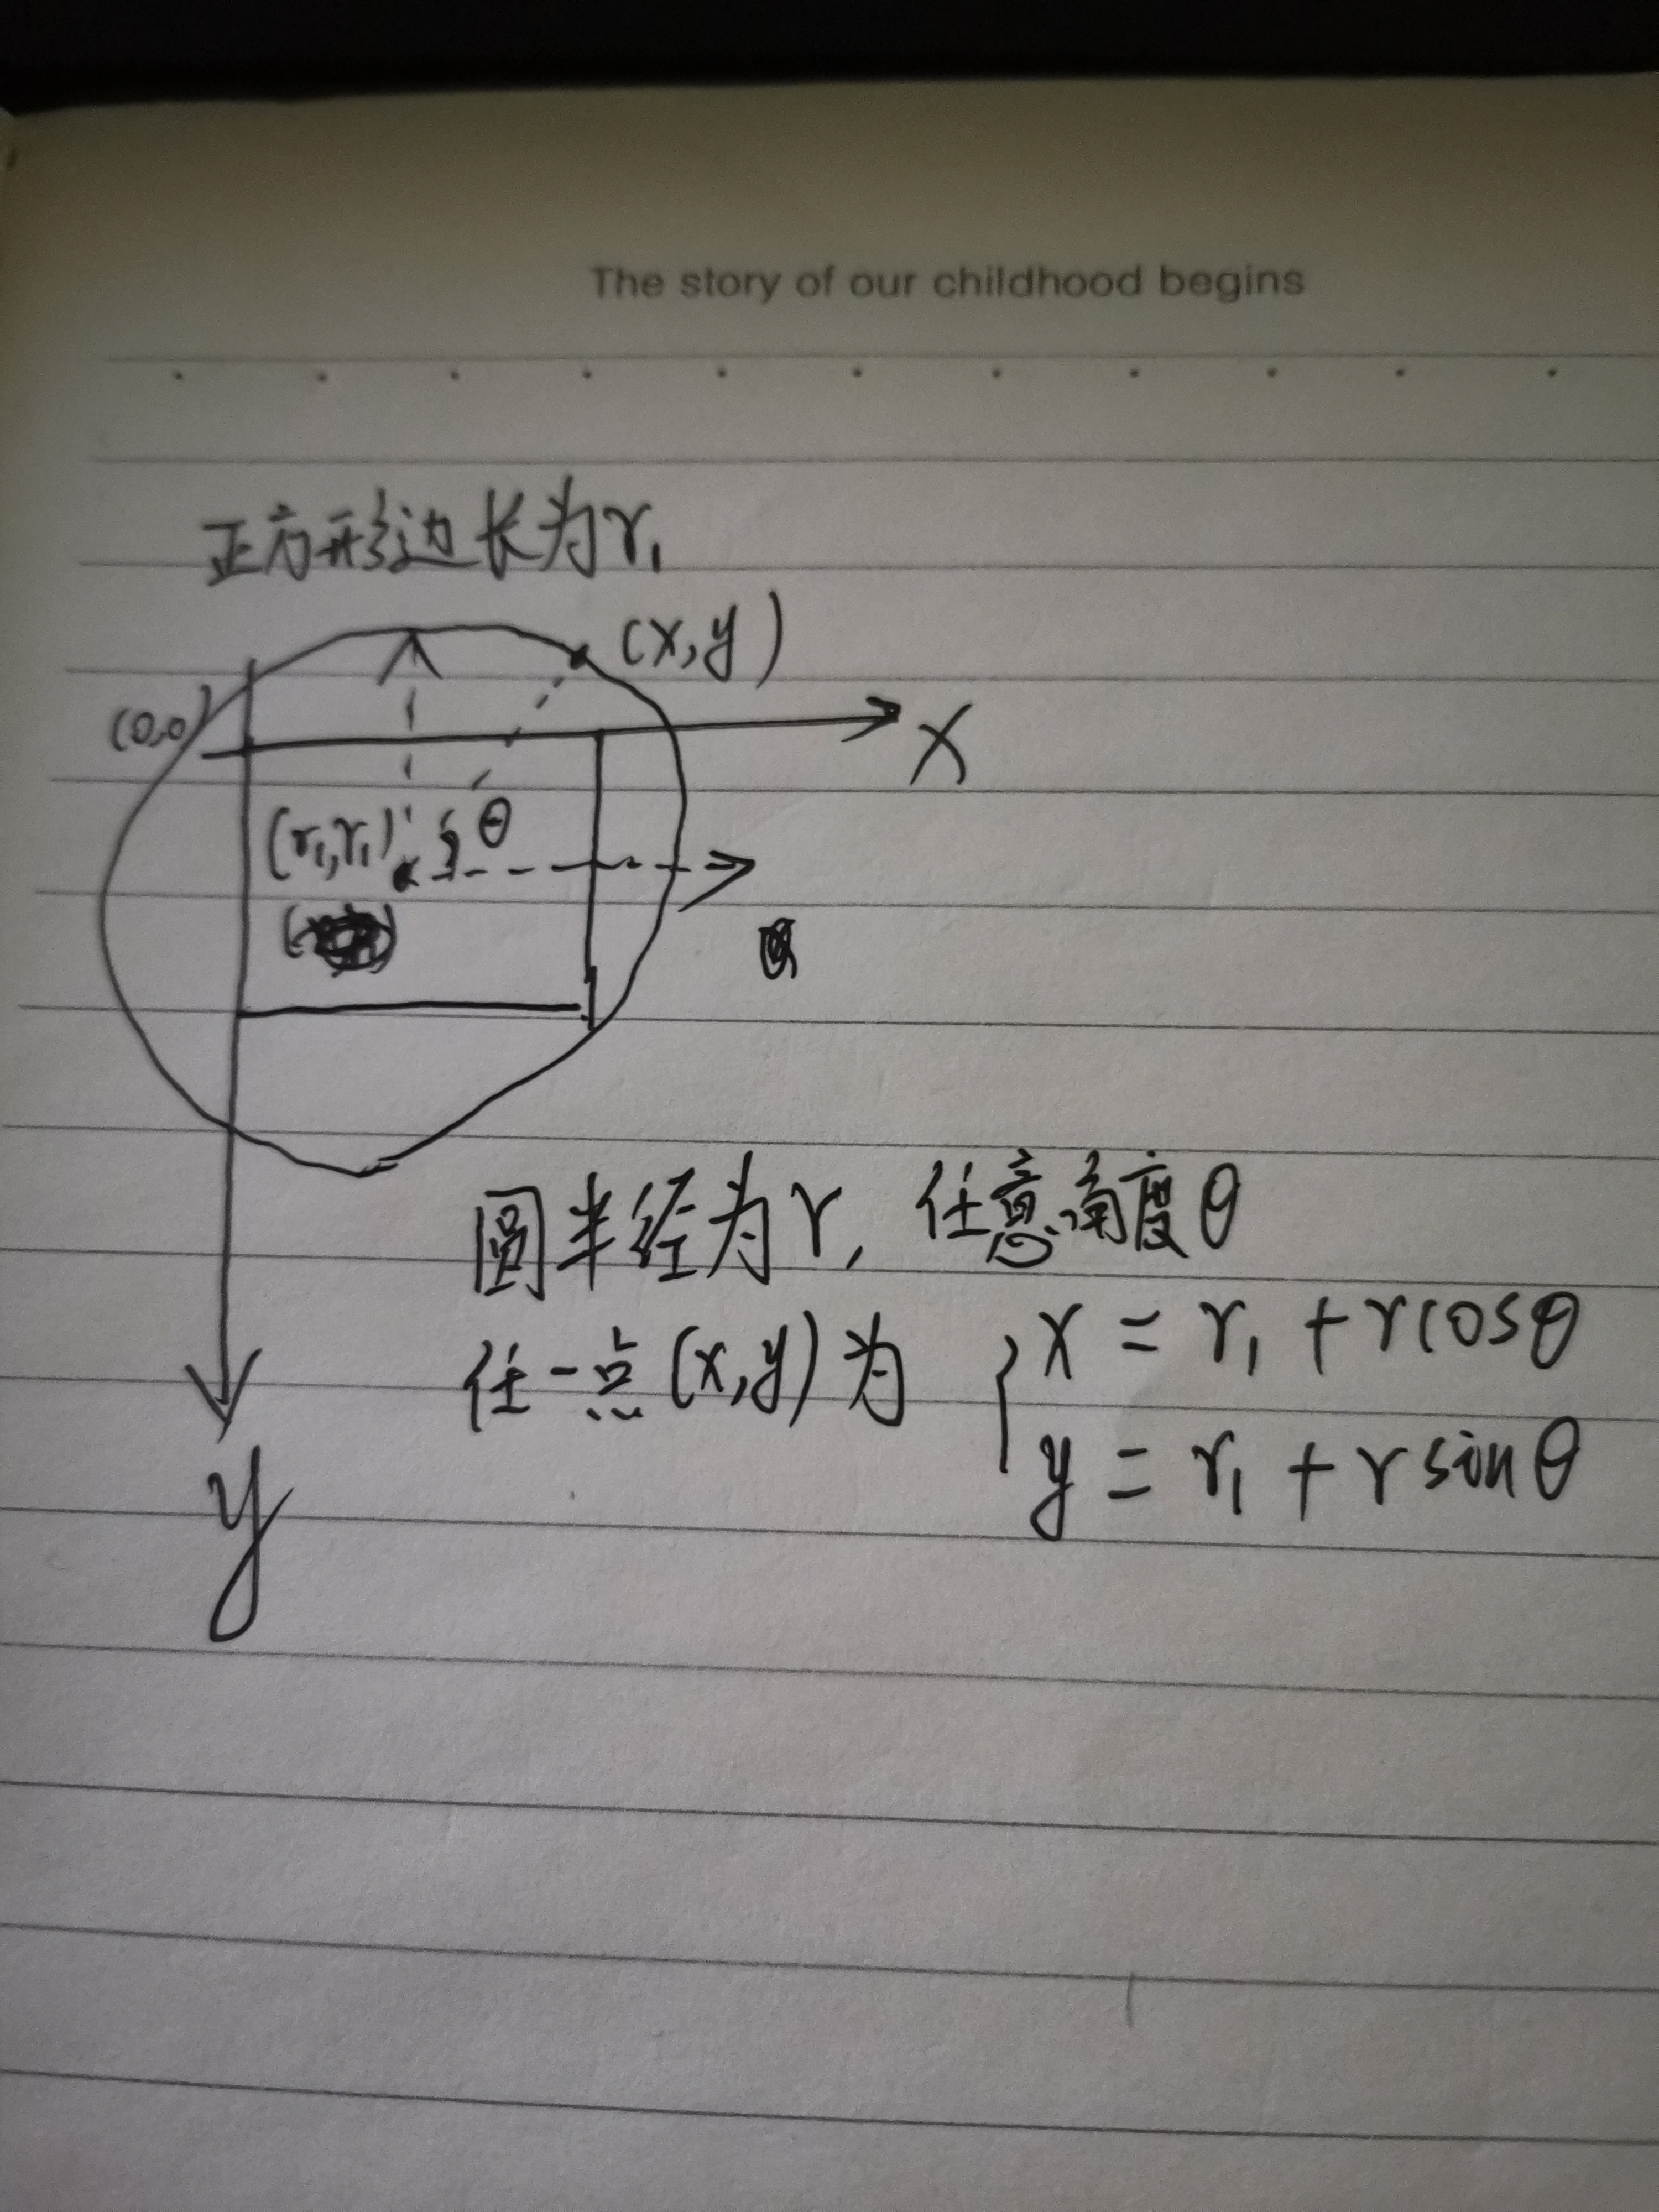 The story of our childhood begins
正方形边长为r₁
(x,y)
(0,0)
X
(r₁,r₁)
θ
圆半径为r, 任意角度θ
任一点(x,y)为 { x = r₁ + rcosθ
y = r₁ + rsinθ
y